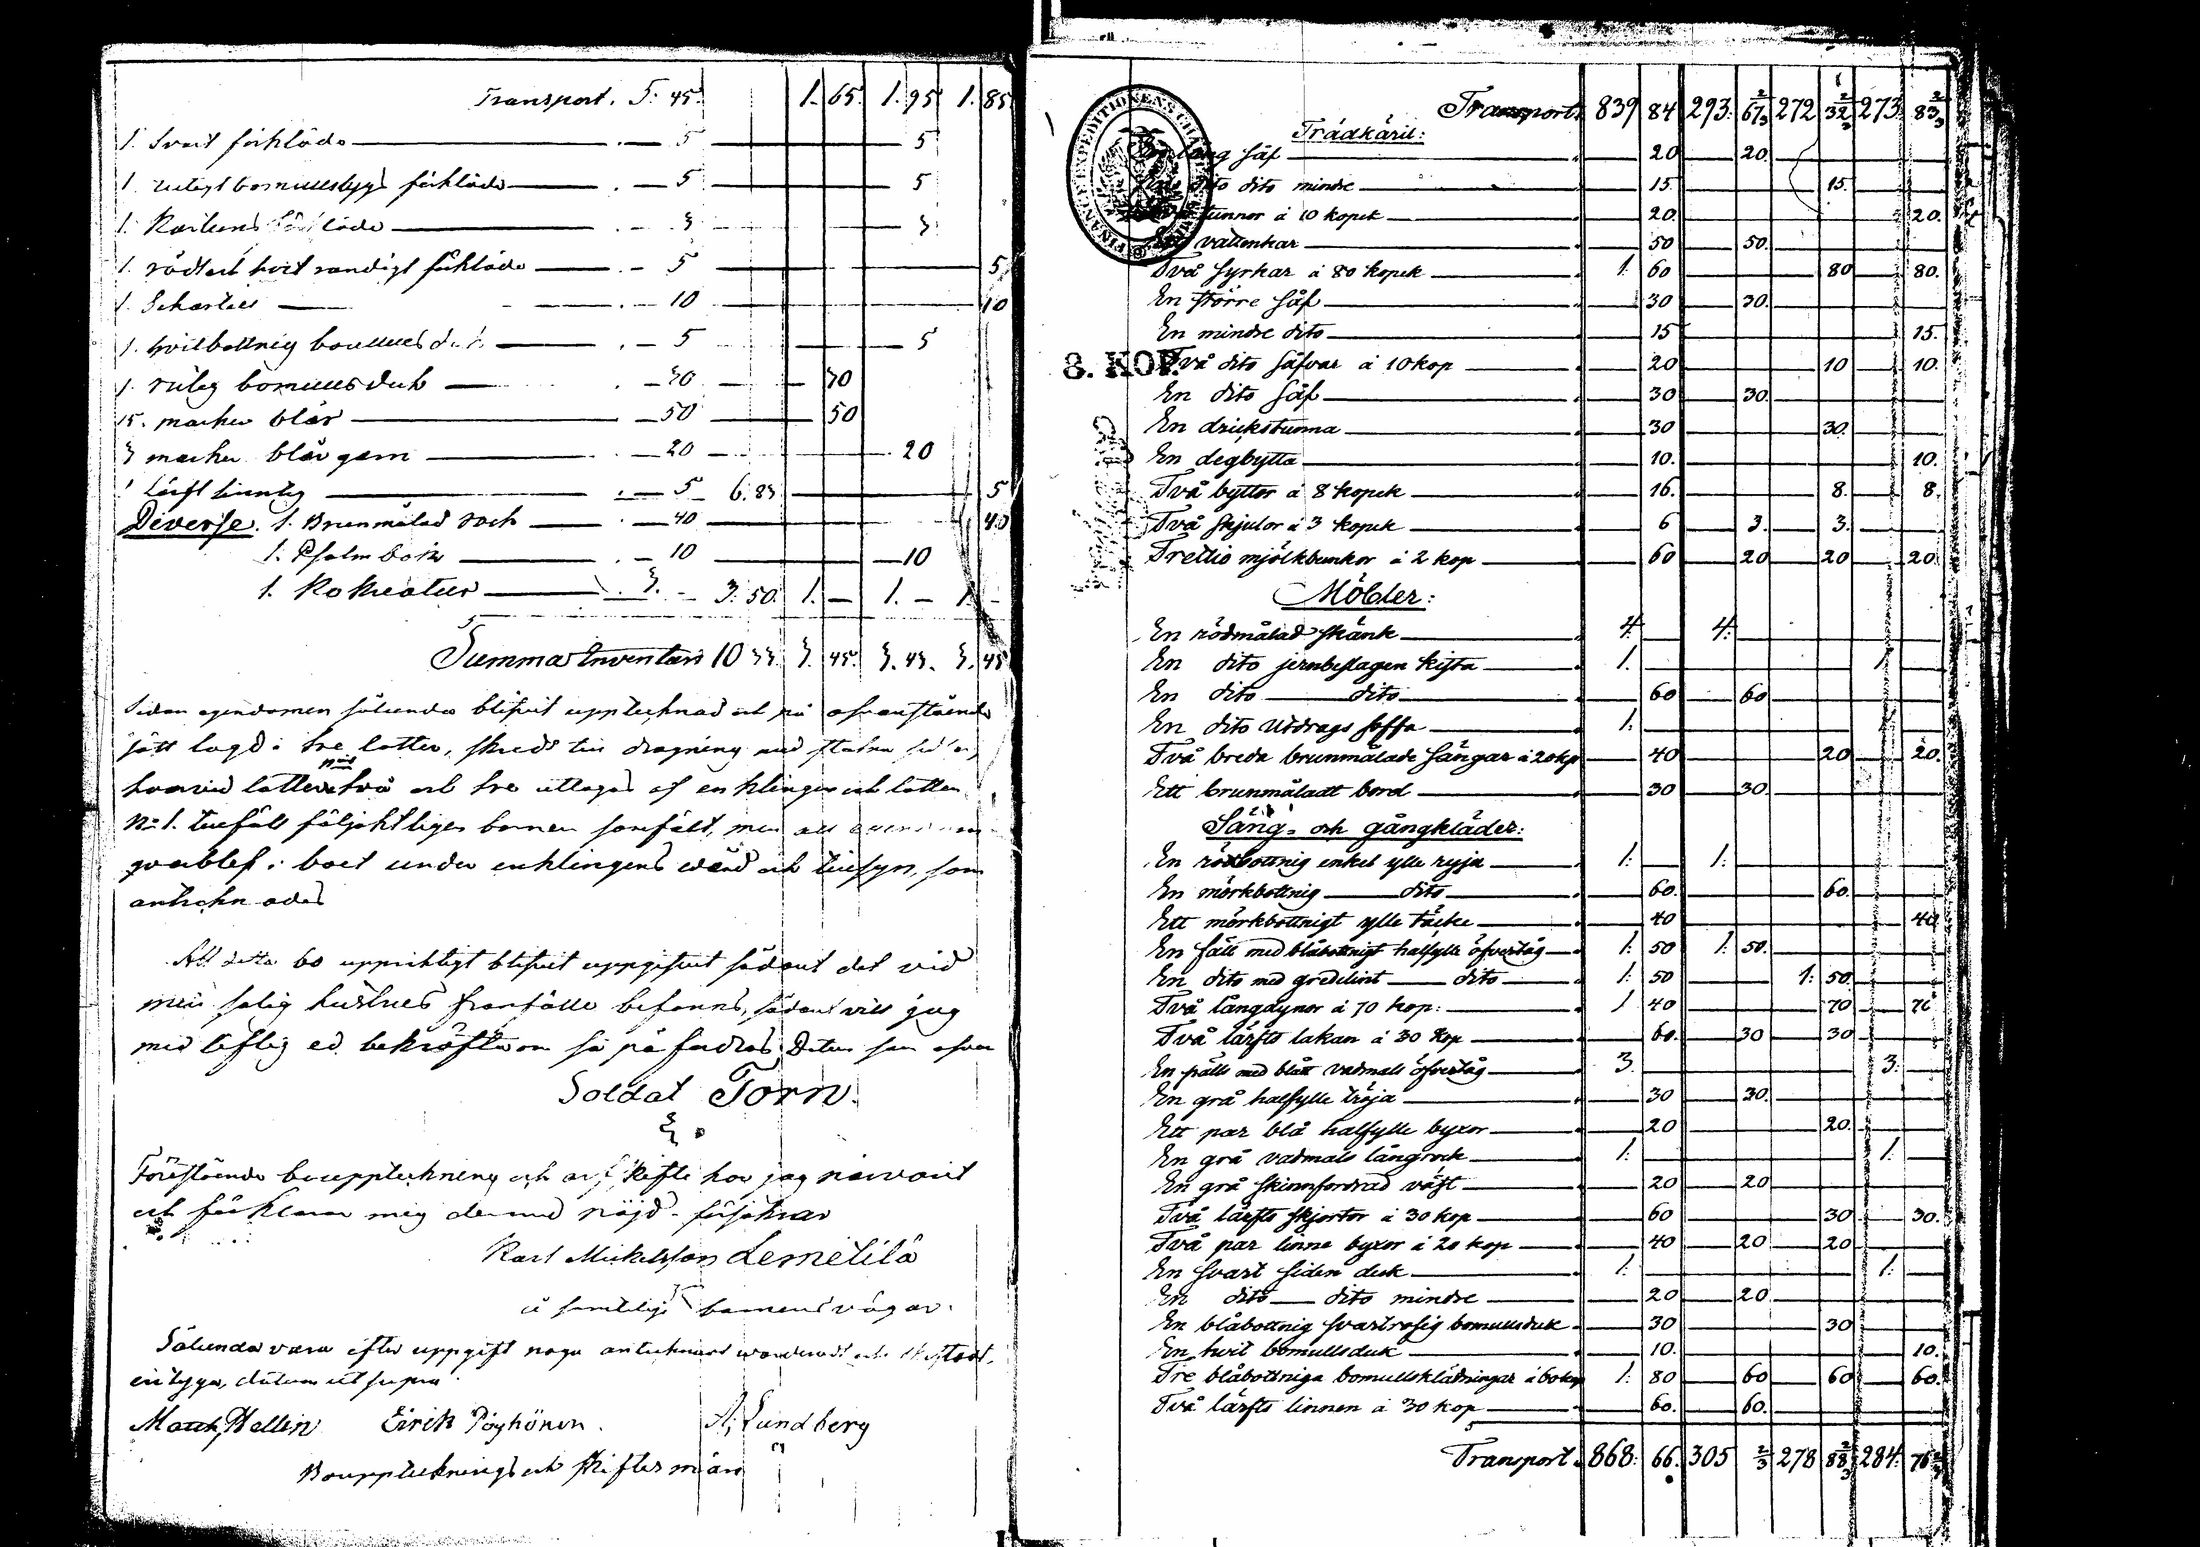 Transport. 5. 45. 1. 65. 1. 95 1. 85
1. Svart förkläde . 5 5
1. rutigt bomullstygs förkläde . 5 5
1. Kartuns förkläde . 3 3
1. rödt och hvit randigt förkläde . 5 5
1. 10 10
1. hvitbottnig bomullsduk . 5 5
1. rutig bomullsduk 30 30
15. marker blår 50 50
3 marker blårgarn . 20 20
1 lärft linntyg . 5 6. 83 5
Diverse. 1. Brunmålad rock . 40 40
1. Psalmbok . 10 10
1. Ko Kreatur 3. 3. 50. 1. 1. 1.
Summa Inventarii 10 33. 3. 45. 3. 43. 3. 45
Sedan egendomen sålunda blifvit upptecknad och på ofvanstående
sätt lagd i tre lotter, skreds till dragning med
hvarvid lotterne två och tre uttogos af enklingen och lotten
No 1. tillföll följaktligen barnen samfält, men all
qvarblef i boet under enklingens vård och tillsyn, som
antecknades
Att detta bo uppriktigt blifvit uppgifvet sådant det vid
min salig hustrus frånfälle befanns, sådant vill jag
med liflig ed bekräfta om så på fordras Datum som ofvan
Soldat Torn.
Förestående bouppteckning och arfskifte har jag närvarit
och förklarar mig dermed nöjd försäkrar
Karl Mickelsson Lemetilä
å samtliga barnens vägar.
Sålunda vara efter uppgift noga antecknadt värderadt och skiftadt,
intyga, datum ut supra.
Matts Hellin Eirik Pöyhönen. A. Lundberg
Boupptecknings och skiftes män
Transport. 839 84 293. 67 2/3 272 32 2/3 273. 83 2/3
FINANCE EXPEDITIONENS
8. KOP.
Trädkäril:
En lång såf 20 20
En dito dito mindre 15. 15.
Två tunnor à 10 kopek 20. 20.
Ett vattenkar 50 50.
Två syrkar à 80 kopek 1. 60 80 80.
En större såf 30 30.
En mindre dito 15 15.
Två dito såfvar à 10 kop 20 10 10.
En dito såf 30 30.
En drickstunna 30 30.
En degbytta 10. 10.
Två byttor à 8 kopek 16. 8. 8.
Två skjulor à 3 kopek 6 3. 3.
Trettio mjölkbunkor à 2 kop 60 20 20 20
Möbler:
En rödmålad skänk 4. 4.
En dito jernbeslagen kista 1. 1
En dito dito 60 60
En dito Utdrags soffa 1. 1
Två breda brunmålade sängar à 20 kop 40 20 20.
Ett brunmåladt bord 30 30.
Säng- och gångkläder:
En rödbottnig enkel ylle ryja 1. 1.
En mörkbottnig dito 60. 60.
Ett mörkbottnigt ylle täcke 40 40
En fäll med blåbottnigt halfylle öfvertåg 1. 50 1. 50.
En dito med gredelint dito 1. 50 1. 50.
Två långdynor à 70 kop. 1 40 70 70
Två lärfts lakan à 30 kop 60. 30 30
En päls med blått vadmals öfvertåg 3. 3.
En grå halfylle tröja 30 30.
Ett par blå halfylle byxor 20 20.
En grå vadmals långrock 1. 1.
En grå skinnfordrad väst 20 20
Två lärfts skjortor à 30 kop 60 30 30.
Två par linne byxor à 20 kop 40 20 20
En svart siden duk 1. 1.
En dito dito mindre 20 20
En blåbottnig svartrosig bomullsduk 30 30
En hvit bomullsduk 10. 10.
Tre blåbottniga bomullsklädningar à 60 kop 1. 80 60 60 60.
Två lärfts linnen à 30 kop 60. 60.
Transport. 868. 66. 305 2/3 278 88 2/3 284. 76 2/3